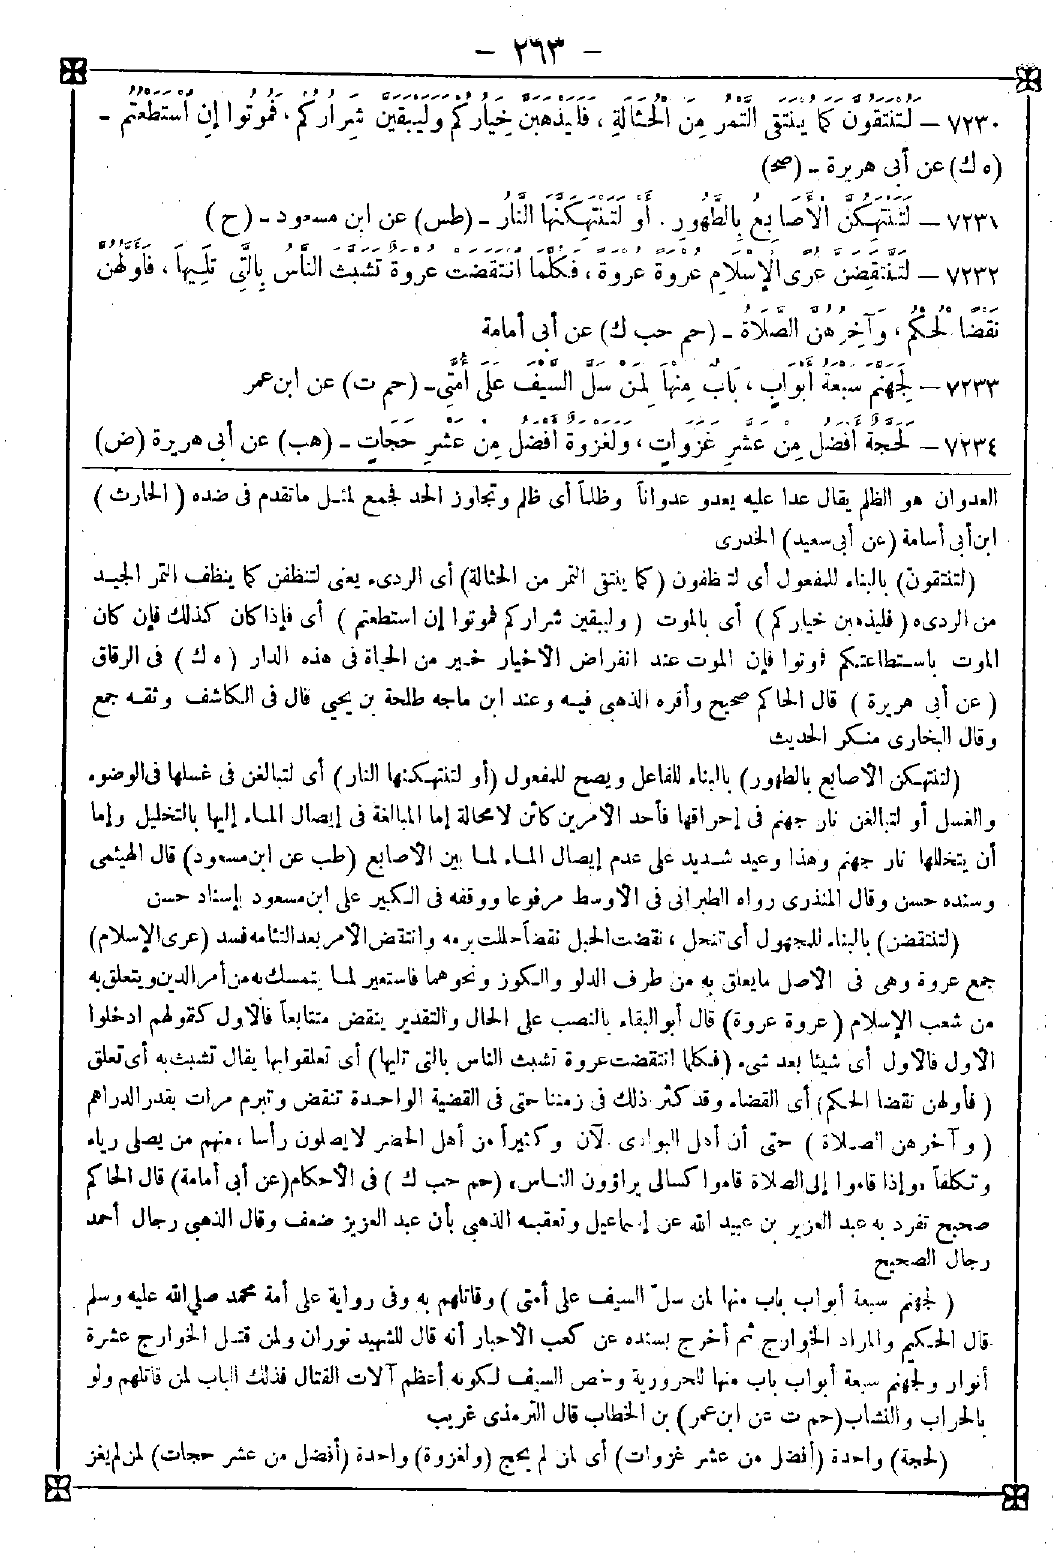 – ٢٦٣ –
٧٢٣٠ – لَتُنْتَقَوُنَّ كَمَا يُنْتَقَى التَّمْرُ مِنَ الْحُثَالَةِ ، فَلْيَذْهَبَنَّ خِيَارُكُمْ وَلَيَبْقَيَنَّ شِرَارُكُمْ ، فَمُوتُوا إِنِ اسْتَطَعْتُمْ –
(ه ك) عن أبى هريرة – (صح)
٧٢٣١ – لَتَنْتَهِكُنَّ الْأَصَابِعَ بِالطَّهُورِ . أَوْ لَتَنْتَهِكَنَّهَا النَّارُ – (طس) عن ابن مسعود – (ح)
٧٢٣٢ – لَتُنْتَقَضَنَّ عُرَى الْإِسْلَامِ عُرْوَةً عُرْوَةً ، فَكُلَّمَا انْتَقَضَتْ عُرْوَةٌ تَشَبَّثَ النَّاسُ بِالَّتِى تَلِيهَا ، فَأَوَّلُهُنَّ
نَقْضًا الْحُكْمُ ، وَآخِرُهُنَّ الصَّلَاةُ – (حم حب ك) عن أبى أمامة
٧٢٣٣ – لِجَهَنَّمَ سَبْعَةُ أَبْوَابٍ ، بَابٌ مِنْهَا لِمَنْ سَلَّ السَّيْفَ عَلَى أُمَّتِى – (حم ت) عن ابن عمر
٧٢٣٤ – لَحَجَّةٌ أَفْضَلُ مِنْ عَشْرِ غَزَوَاتٍ ، وَلَغَزْوَةٌ أَفْضَلُ مِنْ عَشْرِ حَجَّاتٍ – (هب) عن أبى هريرة (ض)
العدوان هو الظلم يقال عدا عليه يعدو عدواناً وظلماً أى ظلم وتجاوز الحد فجمع لمثل ماتقدم فى ضده ( الحارث )
ابن أبى أسامة (عن أبى سعيد) الخدرى
(لتنتقون) بالبناء للمفعول أى لتنظفون (كما ينتقى التمر من الحثالة) أى الردىء يعنى لتنظفن كما ينظف التمر الجيد
من الردىء ( فليذهبن خياركم ) أى بالموت ( وليبقين شراركم فموتوا إن استطعتم ) أى فإذا كان كذلك فإن كان
الموت باستطاعتكم فموتوا فإن الموت عند انقراض الأخيار خير من الحياة فى هذه الدار ( ه ك ) فى الرقاق
( عن أبى هريرة ) قال الحاكم صحيح وأقره الذهبى فيه وعند ابن ماجه طلحة بن يحيى قال فى الكاشف وثقه جمع
وقال البخارى منكر الحديث
(لتنتهكن الأصابع بالطهور) بالبناء للفاعل ويصح للمفعول (أو لتنتهكنها النار) أى لتبالغن فى غسلها فى الوضوء
والغسل أو لتبالغن نار جهنم فى إحراقها فأحد الأمرين كائن لامحالة إما المبالغة فى إيصال الماء إليها بالتخليل وإما
أن يتخللها نار جهنم وهذا وعيد شديد على عدم إيصال الماء لما بين الأصابع (طب عن ابن مسعود) قال الهيثمى
وسنده حسن وقال المنذرى رواه الطبرانى فى الأوسط مرفوعا ووقفه فى الكبير على ابن مسعود بإسناد حسن
(لتنتقضن) بالبناء للمجهول أى تنحل ، نقضت الحبل نقضاً حللت برمه وانتقض الأمر بعد التئامه فسد (عرى الإسلام)
جمع عروة وهى فى الأصل مايعلق به من طرف الدلو والكوز ونحوهما فاستعير لما يتمسك به من أمر الدين ويتعلق به
من شعب الإسلام ( عروة عروة) قال أبو البقاء بالنصب على الحال والتقدير ينقض متتابعاً فالأول كقولهم ادخلوا
الأول فالأول أى شيئا بعد شىء (فكلما انتقضت عروة تشبث الناس بالتى تليها) أى تعلقوا بها يقال تشبث به أى تعلق
( فأولهن نقضا الحكم) أى القضاء وقد كثر ذلك فى زمننا حتى فى القضية الواحدة تنقض وتبرم مرات بقدر الدراهم
( وآخرهن الصلاة ) حتى أن أهل البوادى الآن وكثيراً من أهل الحضر لايصلون رأسا ، منهم من يصلى رياء
وتكلفاً «وإذا قاموا إلى الصلاة قاموا كسالى يراؤون الناس» (حم حب ك ) فى الأحكام (عن أبى أمامة) قال الحاكم
صحيح تفرد به عبد العزيز بن عبيد الله عن إسماعيل وتعقبه الذهبى بأن عبد العزيز ضعف وقال الذهبى رجال أحمد
رجال الصحيح
( لجهنم سبعة أبواب باب منها لمن سلّ السيف على أمتى ) وقاتلهم به وفى رواية على أمة محمد صلى الله عليه وسلم
قال الحكيم والمراد الخوارج ثم أخرج بسنده عن كعب الأحبار أنه قال للشهيد نوران ولمن قتل الخوارج عشرة
أنوار ولجهنم سبعة أبواب باب منها للحرورية وخص السيف لكونه أعظم آلات القتال فذلك الباب لمن قاتلهم ولو
بالحراب والنشاب (حم ت عن ابن عمر) بن الخطاب قال الترمذى غريب
(لحجة) واحدة (أفضل من عشر غزوات) أى لمن لم يحج (ولغزوة) واحدة (أفضل من عشر حجات) لمن لم يغز